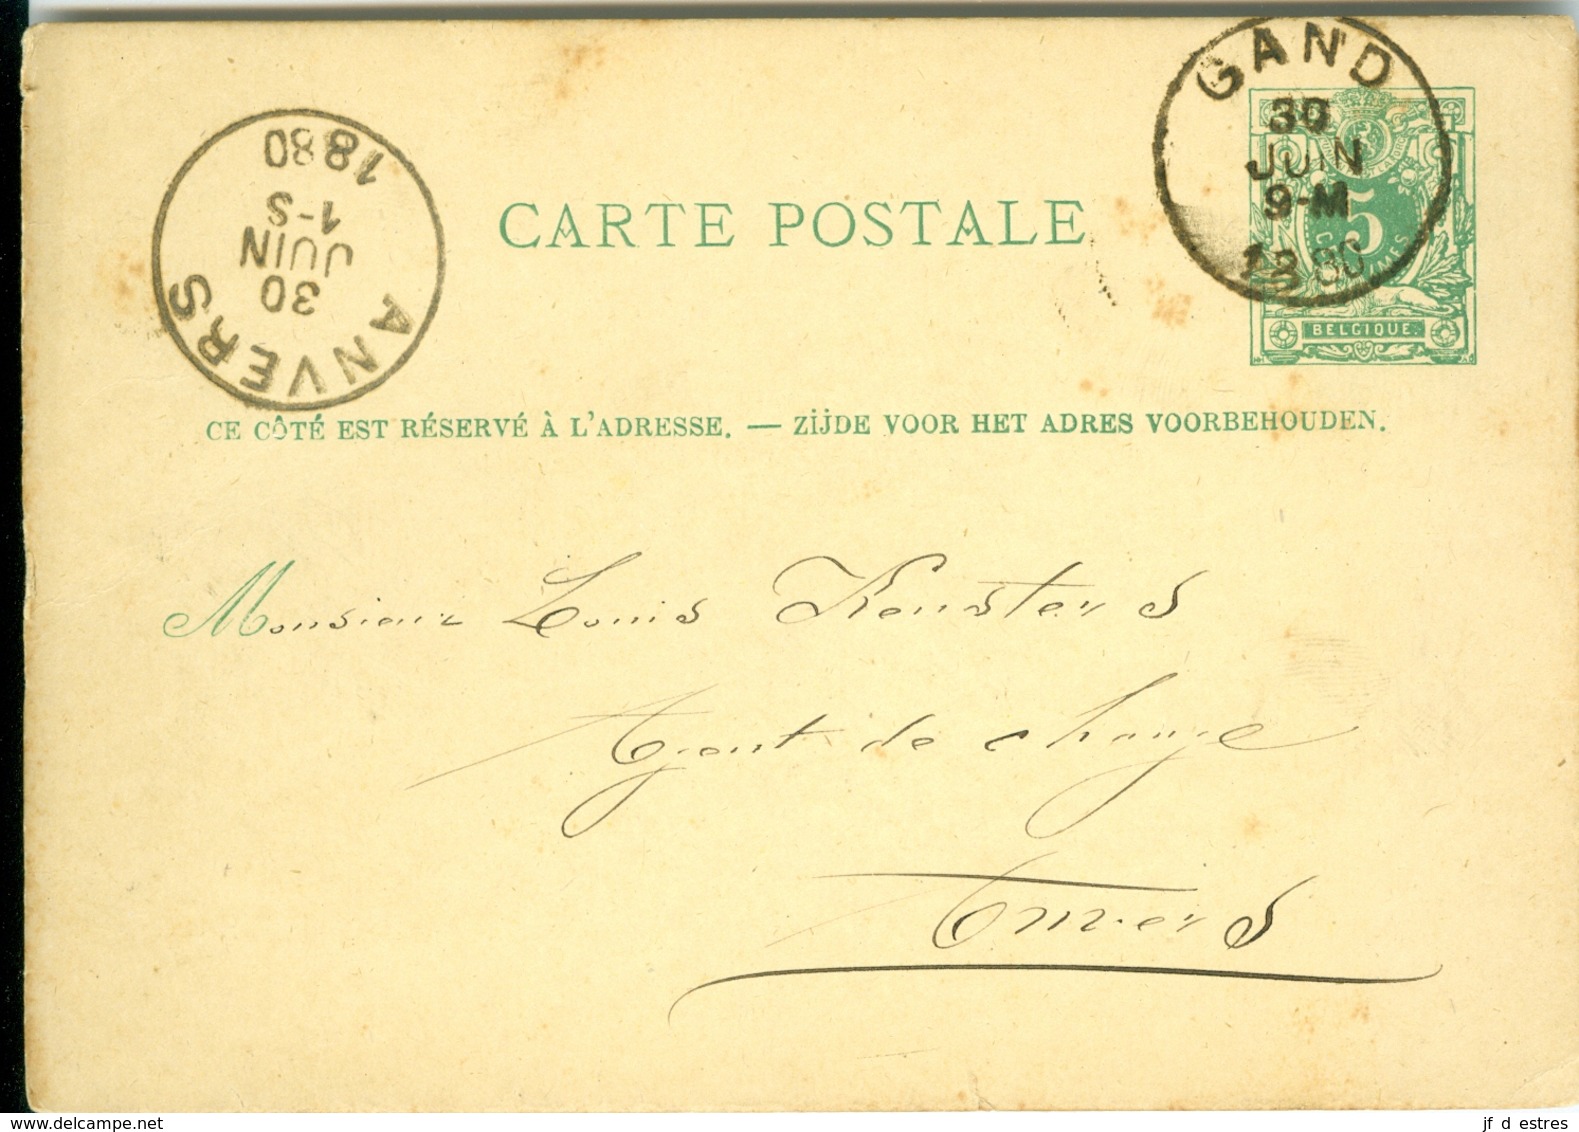 GAND
30
JUIN
9-M
1880
ANVERS
30
JUIN
1-S
1880
CARTE POSTALE
5
CENTIMES
BELGIQUE.
CE CÔTÉ EST RÉSERVÉ À L'ADRESSE. — ZIJDE VOOR HET ADRES VOORBEHOUDEN.
Monsieur Louis Keusters
Agent de change
Anvers
delcampe.net
jf d estres